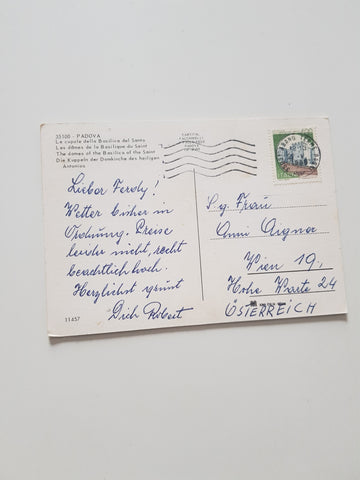 35100 - PADOVA
Le cupole della Basilica del Santo
Les dômes de la Basilique du Saint
The domes of the Basilica of the Saint
Die Kuppeln der Domkirche des heiligen
Antonius
Lieber Ferdy!
Wetter bisher in
Ordnung. Preise
leider nicht, recht
beachtlich hoch.
Herzlichst grüsst
Dich Robert
11457
S.g. Frau
Anni Aigner
Wien 19,
Hohe Warte 24
ÖSTERREICH